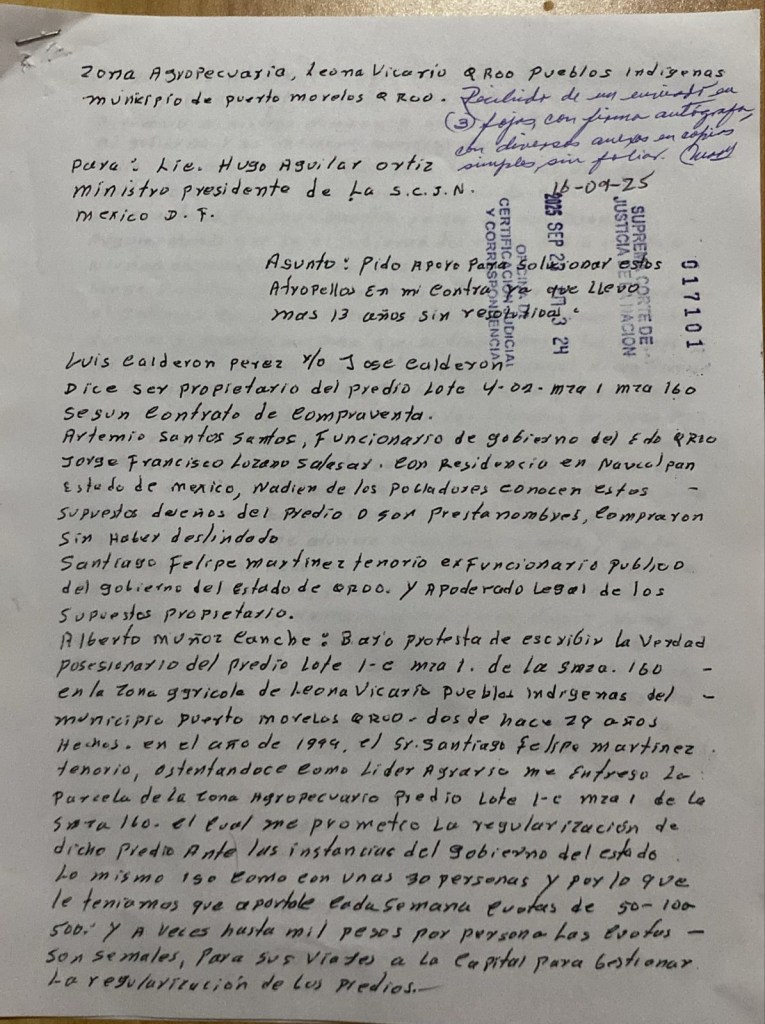 Zona Agropecuaria, Leona Vicario Q Roo Pueblos Indigenas
municipio de puerto morelos Q Roo.
Recibido de un enviado en
(3) fojas con firma autógrafa,
con diversos anexos en copias
simples, sin foliar.
Para: Lic. Hugo Aguilar ortiz
ministro presidente de La S.C.J.N.
mexico D.F.
16-09-25
SUPREMA CORTE DE
JUSTICIA DE LA NACION
017101
2025 SEP
24
OFICINA DE
CERTIFICACION JUDICIAL
Y CORRESPONDENCIA
Asunto: Pido Apoyo Para Solucionar estos
Atropellos En mi Contra ya que LLevo
mas 13 años sin resolutiva.
Luis Calderon perez y/o Jose Calderon
Dice ser propietario del predio Lote 4-02-mza 1 mza 160
Segun Contrato de Compraventa.
Artemio Santos Santos, Funcionario de gobierno del Edo Q Roo
Jorge Francisco Lozano Salasar. Con Residencia en Naucalpan
Estado de mexico, Nadien de los Pobladores conocen estos -
Supuestos dueños del Predio o son prestanombres, Compraron
Sin Haber deslindado
Santiago Felipe martinez tenorio exFuncionario publico
del gobierno del Estado de QROO. y Apoderado Legal de los
Supuestos propietario.
Alberto muñoz Canche: Bajo protesta de escribir La Verdad
posesionario del predio Lote 1-c mza 1. de La Smza. 160 -
en la zona agricola de Leona Vicario Pueblos Indigenas del -
municipio puerto morelos Q ROO - dosde hace 29 años
Hechos. en el año de 1994, el Sr. Santiago Felipe martinez
tenorio, ostentandoce Como Lider Agrario me Entrego La
Parcela de La zona Agropecuario Predio Lote 1-c mza 1 de La
Smza 160. el Cual me prometio La regularización de
dicho Predio Ante las instancias del gobierno del estado
Lo mismo iso Como con unas 30 personas y por lo que
le teniamos que aportble Cada Semana Cuotas de 50-100-
500.- y A veces hasta mil pesos por persona Las Cuotas -
Son Semales, Para sus Viajes a La Capital para Gestionar
La regularización de Los Predios.-